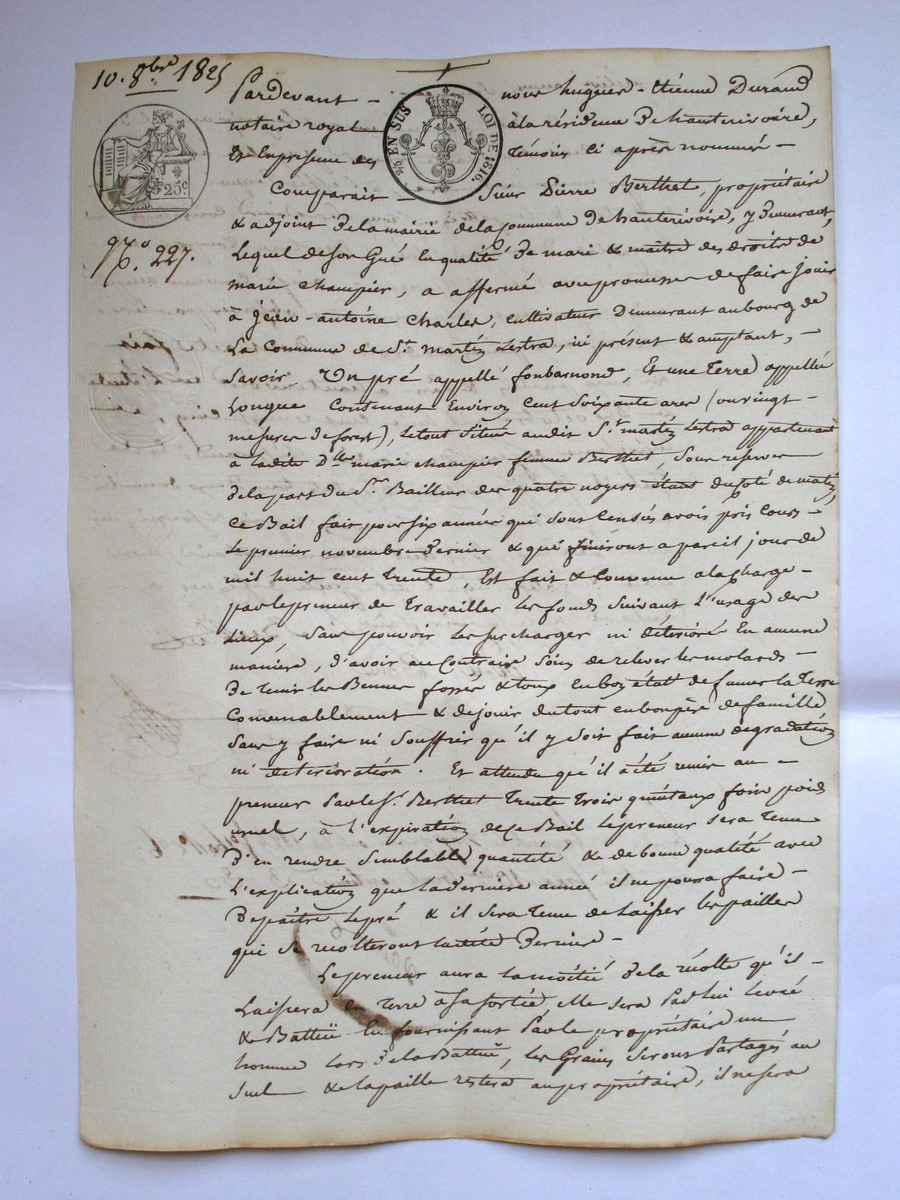 10. 8bre 1825
Pardevant - nous hugues - Etienne Durand
notaire royal à la résidence de hauterivoire,
EN SUS LOI DE 1816.
25c
Et en présence des témoins ci après nommés -
Comparait - Sieur Pierre Berthet, propriétaire
& adjoint de la mairie de la Commune de hauterivoire, y demeurant,
No. 227.
Lequel de son Gré En qualité de mari & maître des droits de
marie champier, a affermé avec promesse de faire jouir
à Jean - antoine Charles, cultivateur demeurant au bourg de
La Commune de St. martin Lestra, ici présent & acceptant, -
Savoir, Un pré appellé fonbarnond, Et une Terre appellée
Longue Contenant Environ Cent Soixante ares (ou vingt -
mesures de forest), le tout Situé audit St. martin Lestra appartenant
à ladite Dlle marie champier femme Berthet, Sous reserve
de la part du Sr. Bailleur des quatre noyers étant du Coté de matin,
Ce Bail fait pour Six années qui Sont Censés avoir pris Cours -
Le premier novembre dernier & qui finiront a pareil jour de
mil huit cent trente, Est fait & Convenu a la Charge -
par le preneur de Travailler les fonds Suivant L'usage des
Lieux, Sans pouvoir les surcharger ni détériorer En aucune
manière, d'avoir au Contraire Soin de relever les molards -
De tenir les Bennes fossés & tous en bon état de fumer la Terre
Convenablement & de jouir du tout en bon père de famille
Sans y faire ni Souffrir qu'il y Soit fait aucune dégradation
ni détérioration. Et attendu qu'il a été remis au -
preneur Par le Sr. Berthet Trente Trois quintaux foin poids
usuel, à l'expiration de Ce Bail le preneur Sera Tenu
D'en rendre Semblable quantité & de bonne qualité avec
L'explication que la dernière année il ne pourra faire -
Dépaître le pré & il Sera Tenu de Laisser les pailles
qui Se recolteront Ladite Dernière -
Le preneur aura la moitié de la récolte qu'il -
Laissera En Terre à Sa Sortie, Elle Sera Par lui levée
& Battue En fournissant Par le propriétaire un
homme Lors de la Battue, les Grains Seront Partagés au
Suel & la paille restera au propriétaire, il ne sera